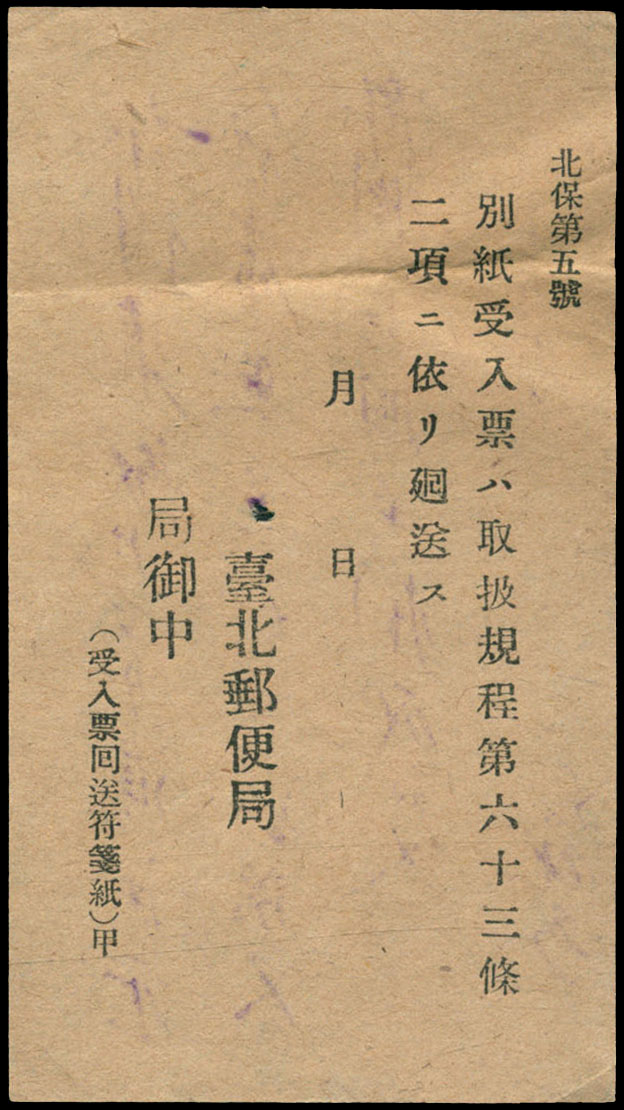 北保第五號
別紙受入票ハ取扱規程第六十三條
二項ニ依リ廻送ス
月 日
臺北郵便局
局御中
(受入票囘送符箋紙)甲